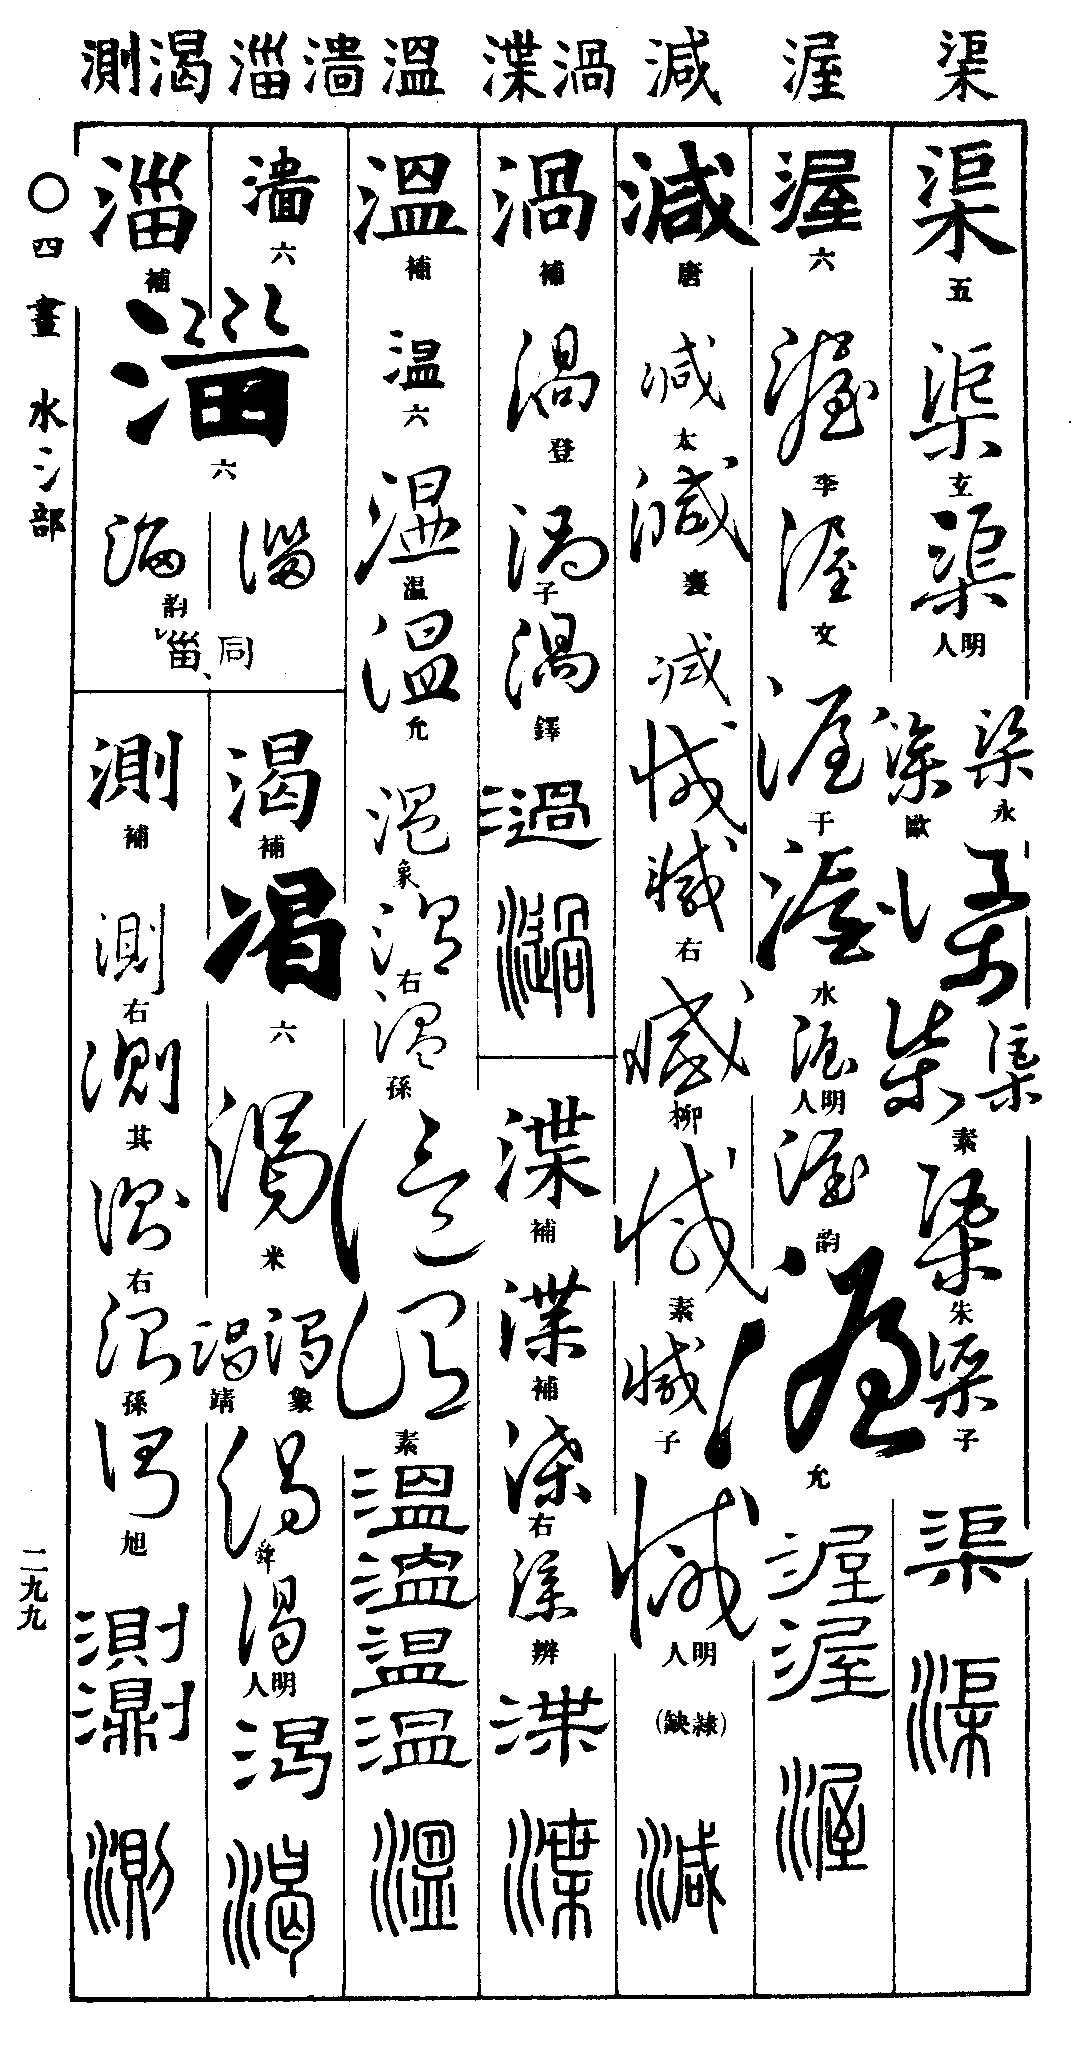 渠 渥 減 渦 渫 溫 㴓 淄 渴 測
渠
五
渠
立
渠
明人
渠
永
渠
歐
渠
渠
渠
素
渠
朱
渠
子
渠
渠
渥
六
渥
李
渥
文
渥
千
渥
水
渥
明人
渥
韵
渥
允
渥
渥
渥
減
唐
減
太
減
襄
減
減
減
右
減
柳
減
素
減
子
減
明人
(隸缺)
減
渦
補
渦
登
渦
子
渦
鐸
渦
渦
渫
補
渫
補
渫
右
渫
辨
渫
渫
溫
補
温
六
温
溫
溫
允
溫
象
溫
右
溫
孫
溫
溫
素
溫
溫
溫
溫
溫
六
淄
補
六
淄
淄
韵
同
渴
補
渴
六
渴
米
渴
象
渴
靖
渴
渴
明人
渴
渴
測
補
測
右
測
其
測
右
測
孫
測
旭
測
測
測
○四畫 水氵部
二九九